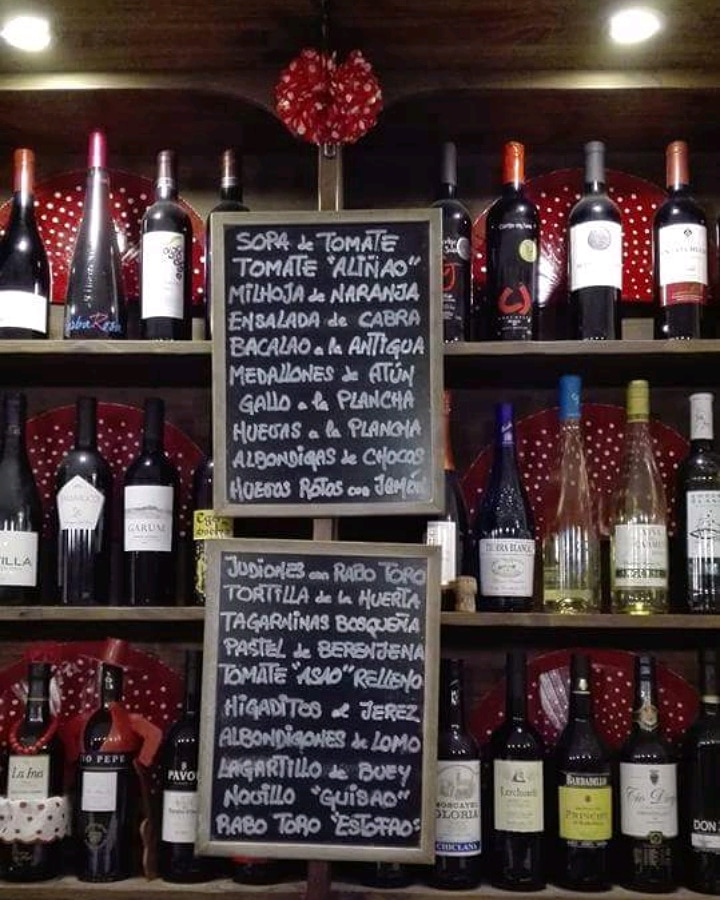 SOPA de TOMATE
TOMATE "ALIÑAO"
MILHOJA de NARANJA
ENSALADA de CABRA
BACALAO a la ANTIGUA
MEDALLONES de ATÚN
GALLO a la PLANCHA
HUEVAS a la PLANCHA
ALBONDIGAS de CHOCOS
HUEVOS ROTOS con JAMÓN
JUDIONES con RABO TORO
TORTILLA de la HUERTA
TAGARNINAS BOSQUEÑA
PASTEL de BERENJENA
TOMATE "ASAO" RELLENO
HIGADITOS al JEREZ
ALBONDIGONES de LOMO
LAGARTILLO de BUEY
NOVILLO "GUISAO"
RABO TORO "ESTOFAO"
GARUM
TIERRA BLANCA
La Ina
TIO PEPE
PAVO
MOSCATEL
GLORIA
CHICLANA
Lerchundi
BARBADILLO
PRINCIPE
Tio Diego
DON